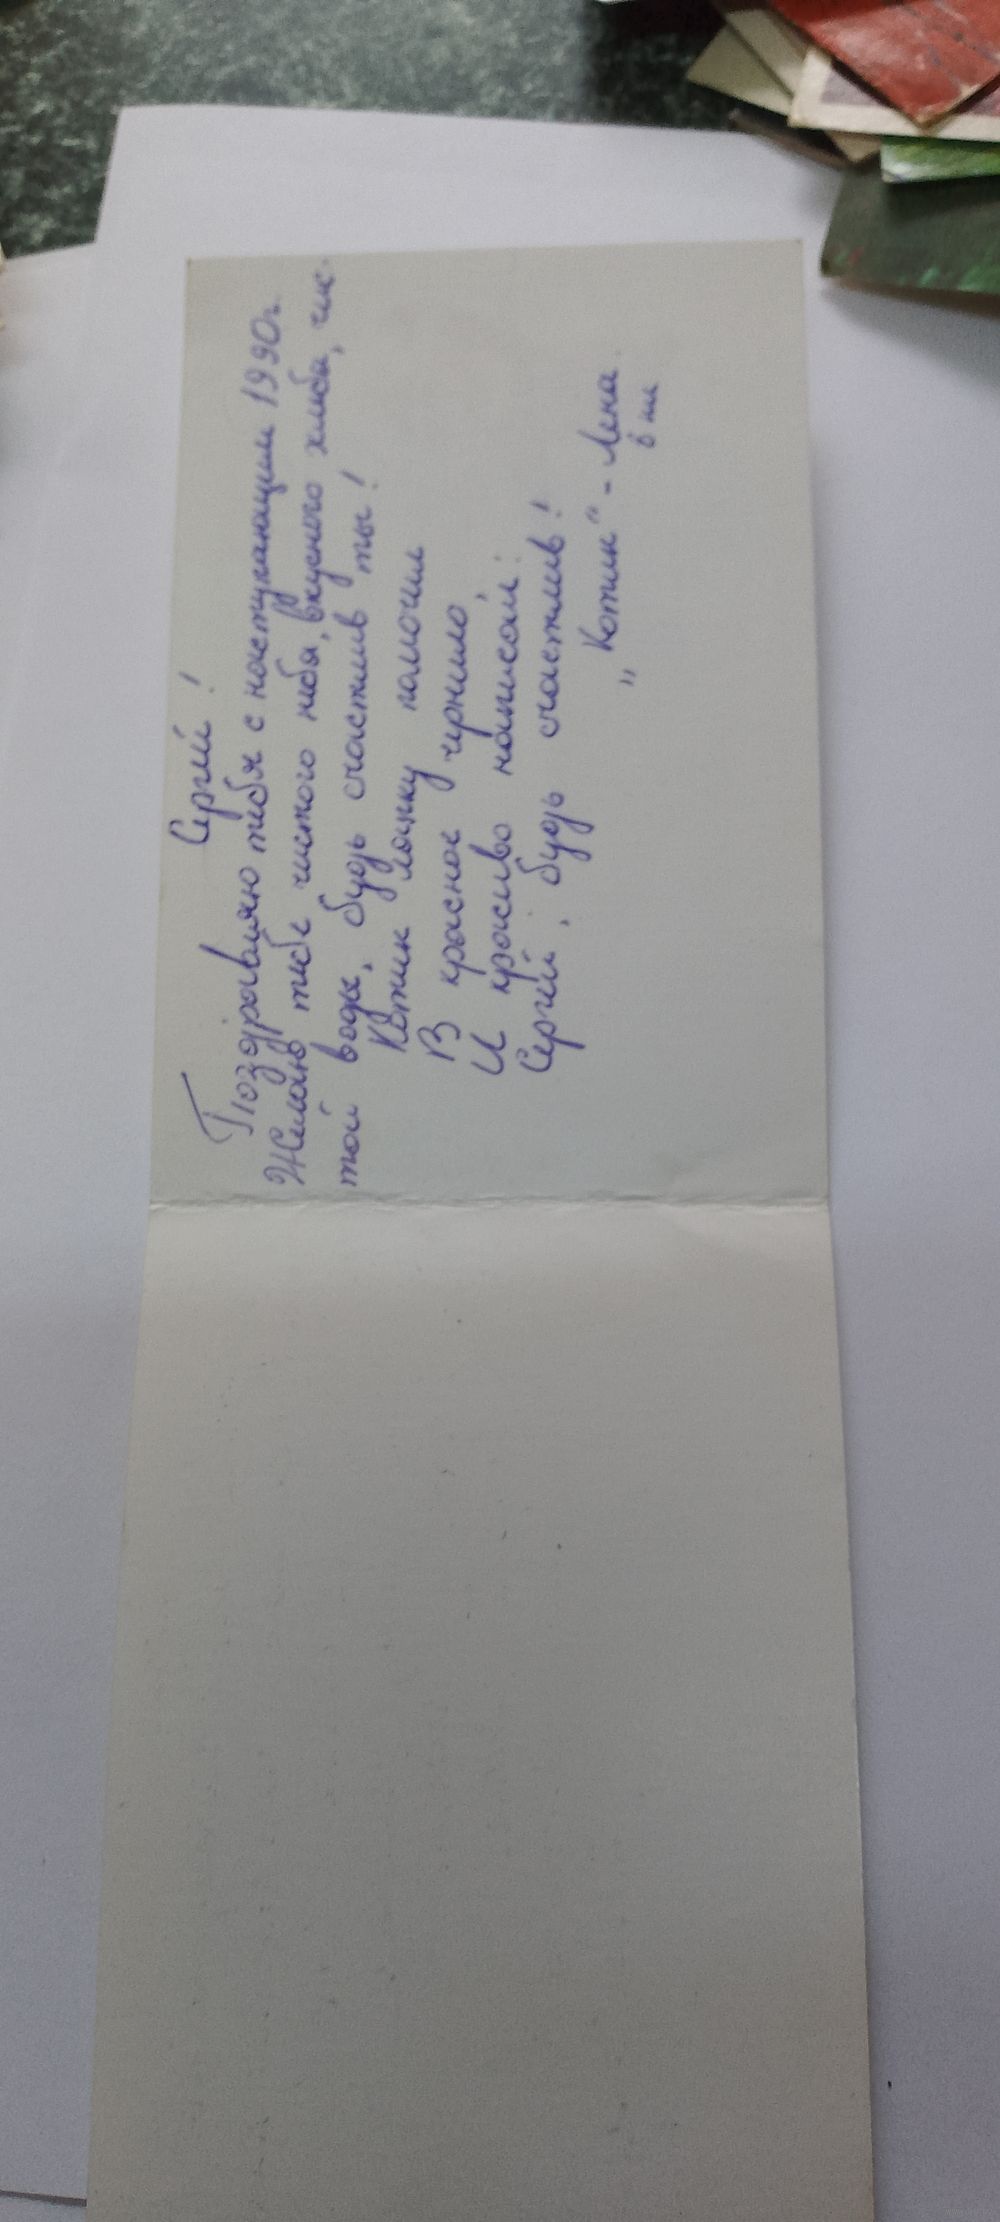 Сергей!
Поздравляю тебя с наступающим 1990г.
Желаю тебе чистого неба, вкусного хлеба, чис-
той воды, будь счастлив ты!
Котик лапку помочил
В красное чернило,
И красиво написал:
Сергей, будь счастлив!
„Котик" - Лена